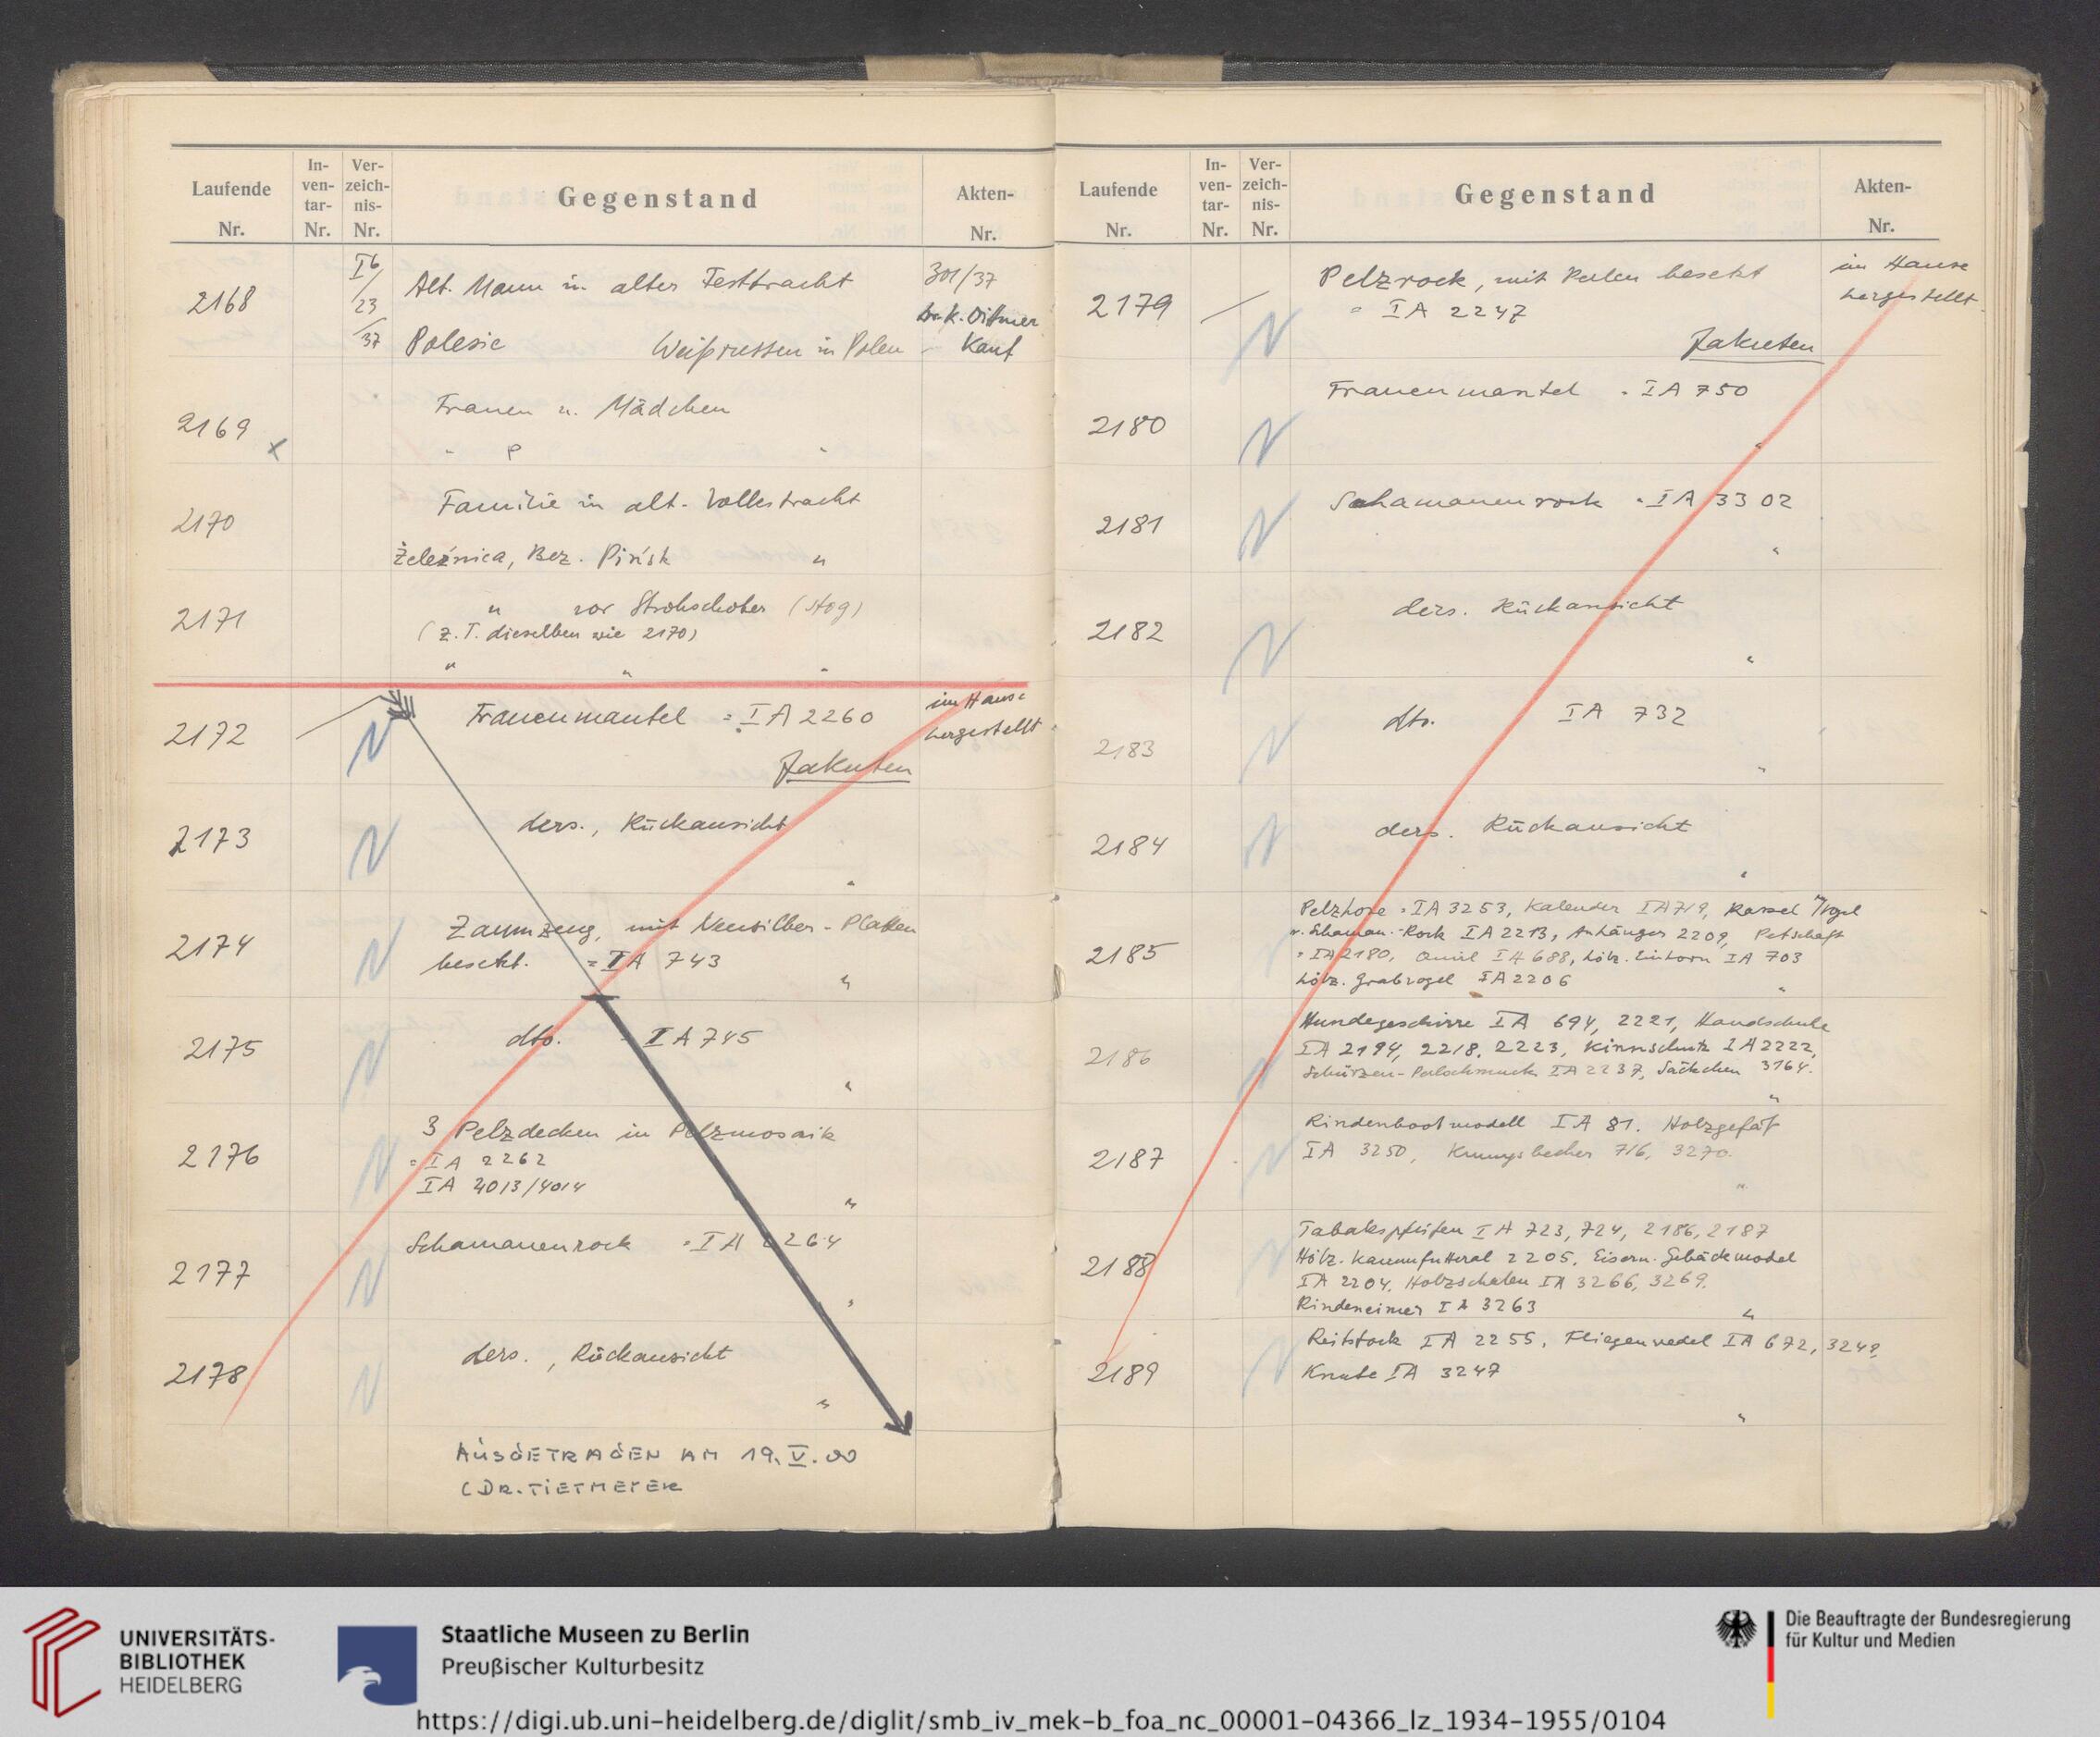 Laufende Nr.
In-ven-tar-Nr.
Ver-zeich-nis-Nr.
Gegenstand
Akten-Nr.
2168
I b / 23 / 37
Alt. Mann in alter Festtracht
301/37
Dr. K. Dittmer
Polesie Weißrussen in Polen
Kauf
2169 x
Frauen u. Mädchen
" " "
2170
Familie in alt. Volkstracht
Železnica, Bez. Pińsk "
2171
" vor Strohschober (stog)
(z. T. dieselben wie 2170)
" " "
2172
Frauenmantel = IA 2260
im Hause
hergestellt
Jakuten
2173
ders., Rückansicht
"
2174
Zaumzeug, mit Neusilber-Platten
besetzt. = IA 743
"
2175
dto. = IA 745
"
2176
3 Pelzdecken in Pelzmosaik
= IA 2262
IA 4013/4014
"
2177
Schamanenrock = IA 2264
"
2178
ders., Rückansicht
"
AUSGETRAGEN AM 19. V. 00
(DR. TIETMEYER
Laufende Nr.
In-ven-tar-Nr.
Ver-zeich-nis-Nr.
Gegenstand
Akten-Nr.
2179
Pelzrock, mit Perlen besetzt
im Hause
= IA 2247
hergestellt
Jakuten
2180
Frauenmantel = IA 750
"
2181
Schamanenrock = IA 3302
"
2182
ders. Rückansicht
"
2183
dto. IA 732
"
2184
ders. Rückansicht
"
2185
Pelzhose = IA 3253, Kalender IA 719, Rassel m/Vogel
v. Schaman.-Rock IA 2213, Anhänger 2209, Petschaft
= IA 2180, IA 688, hölz. Einhorn IA 703
hölz. Grabvogel IA 2206
"
2186
Hundegeschirre IA 694, 2221, Handschuhe
IA 2194, 2218, 2223, Kinnschutz IA 2222,
Schürzen-Perlschmuck IA 2237, Säckchen 3164.
"
2187
Rindenbootmodell IA 81. Holzgefäß
IA 3250, Kumysbecher 716, 3270.
"
2188
Tabakspfeifen IA 723, 724, 2186, 2187
Hölz. Kammfutteral 2205, Eisern. Gebäckmodel
IA 2204, Holzschalen IA 3266, 3269.
Rindeneimer IA 3263
"
2189
Reitstock IA 2255, Fliegenwedel IA 672,
Knute IA 3247
"
UNIVERSITÄTS-
BIBLIOTHEK
HEIDELBERG
Staatliche Museen zu Berlin
Preußischer Kulturbesitz
Die Beauftragte der Bundesregierung
für Kultur und Medien
https://digi.ub.uni-heidelberg.de/diglit/smb_iv_mek-b_foa_nc_00001-04366_lz_1934-1955/0104